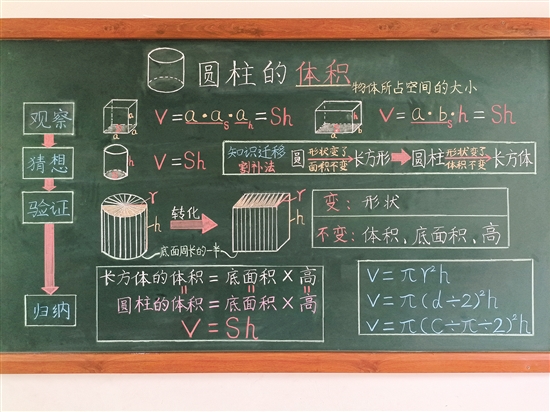 圆柱的体积
物体所占空间的大小
观察
猜想
验证
归纳
a
a
a
V=a·a·a=Sh
S h
a
b
h
V=a·b·h=Sh
S
h
V=Sh
知识迁移
割补法
圆 形状变了 面积不变 长方形 圆柱 形状变了 体积不变 长方体
r
h
转化
r
h
底面周长的一半
变:形状
不变:体积、底面积、高
长方体的体积=底面积×高
圆柱的体积=底面积×高
V=Sh
V=πr²h
V=π(d÷2)²h
V=π(C÷π÷2)²h